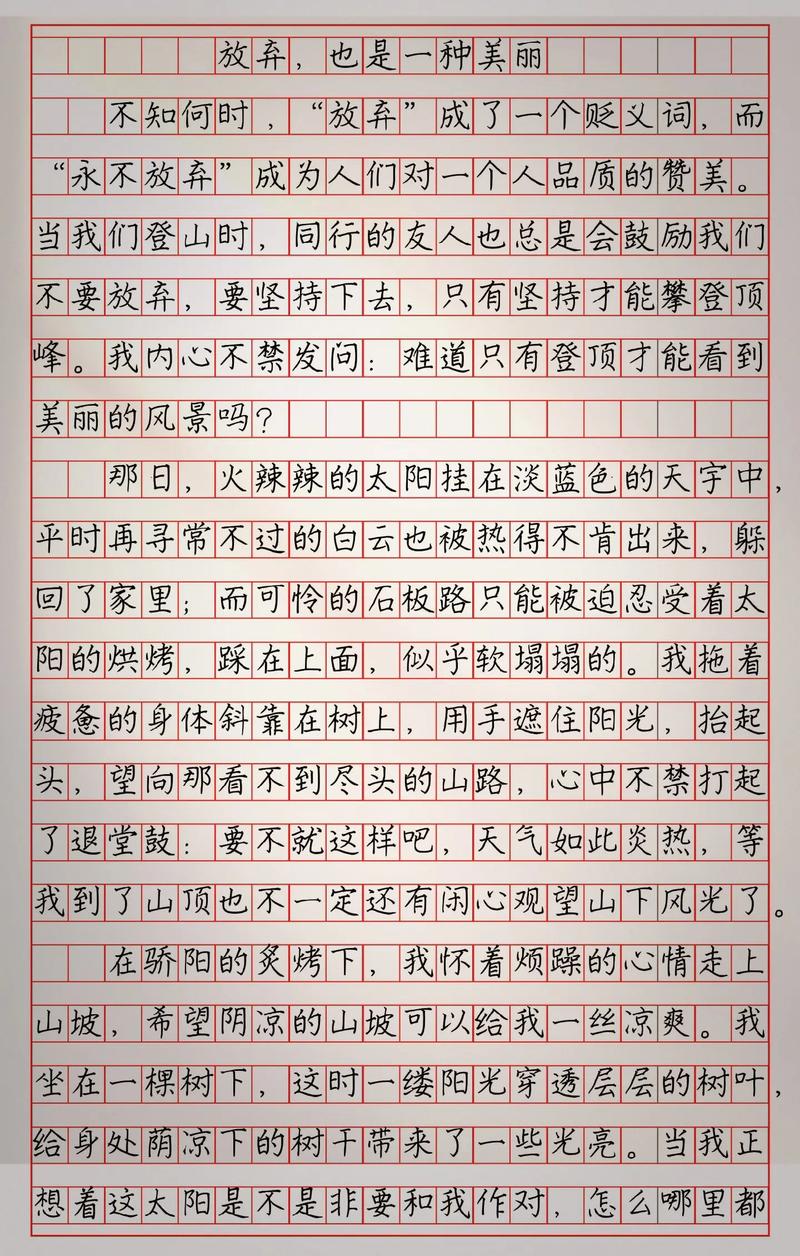 放弃，也是一种美丽
不知何时，“放弃”成了一个贬义词，而
“永不放弃”成为人们对一个人品质的赞美。
当我们登山时，同行的友人也总是会鼓励我们
不要放弃，要坚持下去，只有坚持才能攀登顶
峰。我内心不禁发问：难道只有登顶才能看到
美丽的风景吗？
那日，火辣辣的太阳挂在淡蓝色的天宇中，
平时再寻常不过的白云也被热得不肯出来，躲
回了家里；而可怜的石板路只能被迫忍受着太
阳的烘烤，踩在上面，似乎软塌塌的。我拖着
疲惫的身体斜靠在树上，用手遮住阳光，抬起
头，望向那看不到尽头的山路，心中不禁打起
了退堂鼓：要不就这样吧，天气如此炎热，等
我到了山顶也不一定还有闲心观望山下风光了。
在骄阳的炙烤下，我怀着烦躁的心情走上
山坡，希望阴凉的山坡可以给我一丝凉爽。我
坐在一棵树下，这时一缕阳光穿透层层的树叶，
给身处荫凉下的树干带来了一些光亮。当我正
想着这太阳是不是非要和我作对，怎么哪里都